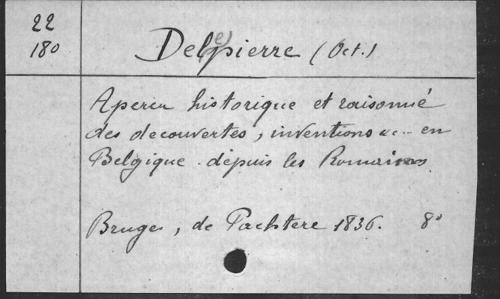 22
180
Delepierre (Oct.)
Apercu historique et raisonné
des decouvertes, inventions &c.. en
Belgique depuis les Romains
Bruges, de Pachtere 1836. 8°